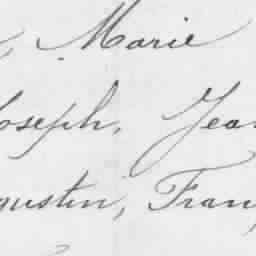 , Marie
Joseph, Jean
gustin, Fran